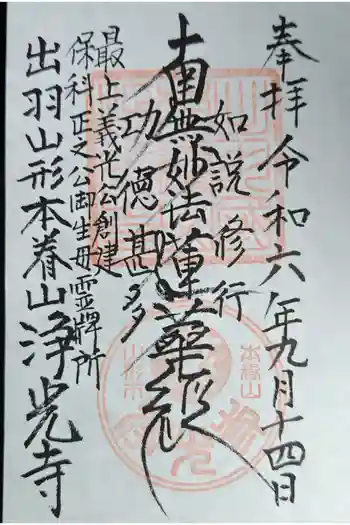 奉拝 令和六年九月十四日
如説修行
南無妙法蓮華経
功徳甚多
最上義光公創建
保科正之公御生母霊牌所
出羽山形本養山浄光寺